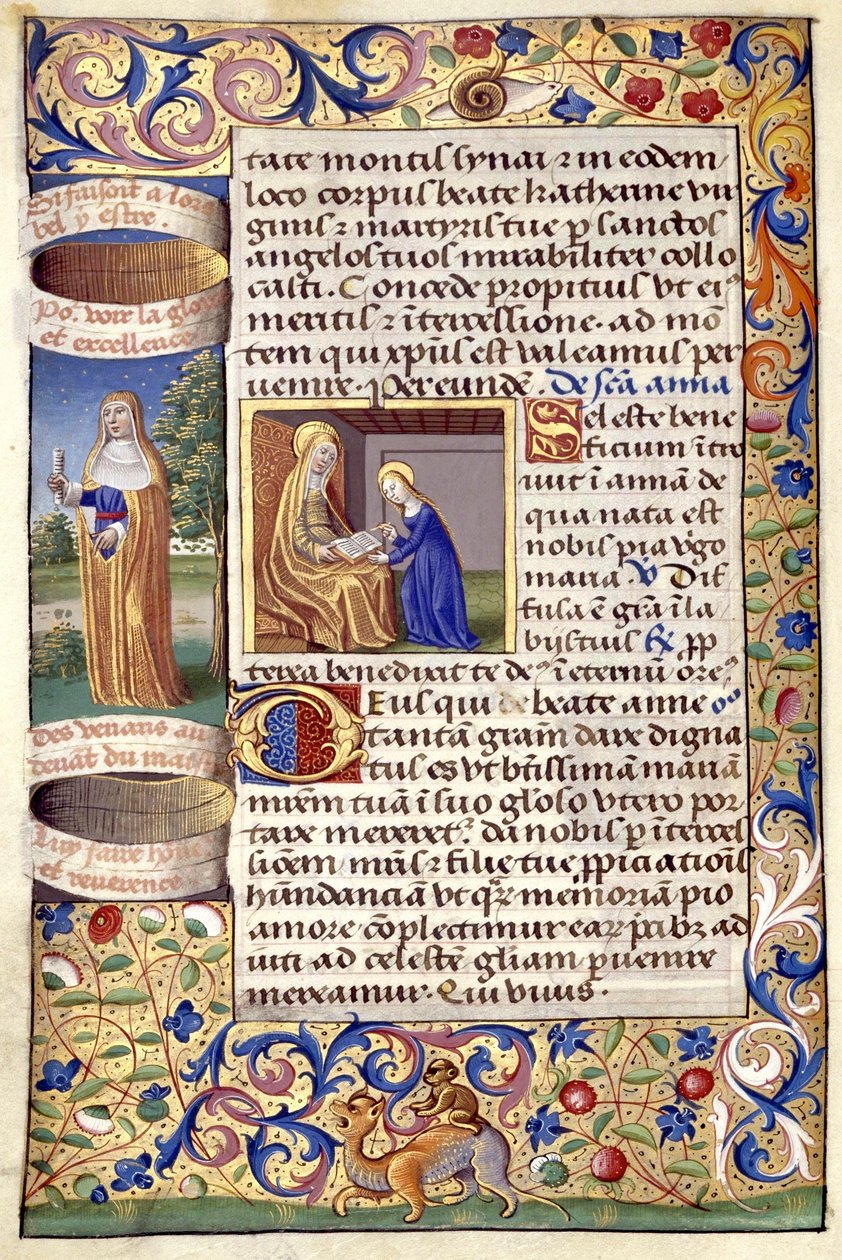 Si faisoit a lors
bel y estre.
Po². voir la gloire
et excellence
Des venans au
devāt du
Luy faire hōne
et reverence
tate montis synai ⁊ in eodem
loco corpus beate katherine vir
ginis ⁊ martyris tue p sanctos
angelos tuos mirabiliter collo
casti. Concede propitius vt ei²
meritis ⁊ ītercessione. ad mō
tem qui xp̄us est valeamus per
uenire. Per eundē. De scā anna
Sel este bene
ficium ītro
iuit ī annā de
qua nata est
nobis pia v̄go
maria. ℣ Dif
fusa ē gr̄a ī la
bijs tuis ℟ ꝓp
terea benedixit te de² ī eternū ōre²
Deus qui de beate anne
tantā gr̄am dare digna
tus es vt btīssimā mariā
mr̄em tuā ī suo gl̄oso vtero por
tare mereret². da nobis p īterces
siōem mr̄is ⁊ filie tue ꝓpiciatiōis
habūdanciā vt q²ꝝ memoriā pio
amore cōplectimur eaꝝ p̄cibꝫ ad
iuti ad celestē gl̄iam puenire
mereamur. Qui viuis.